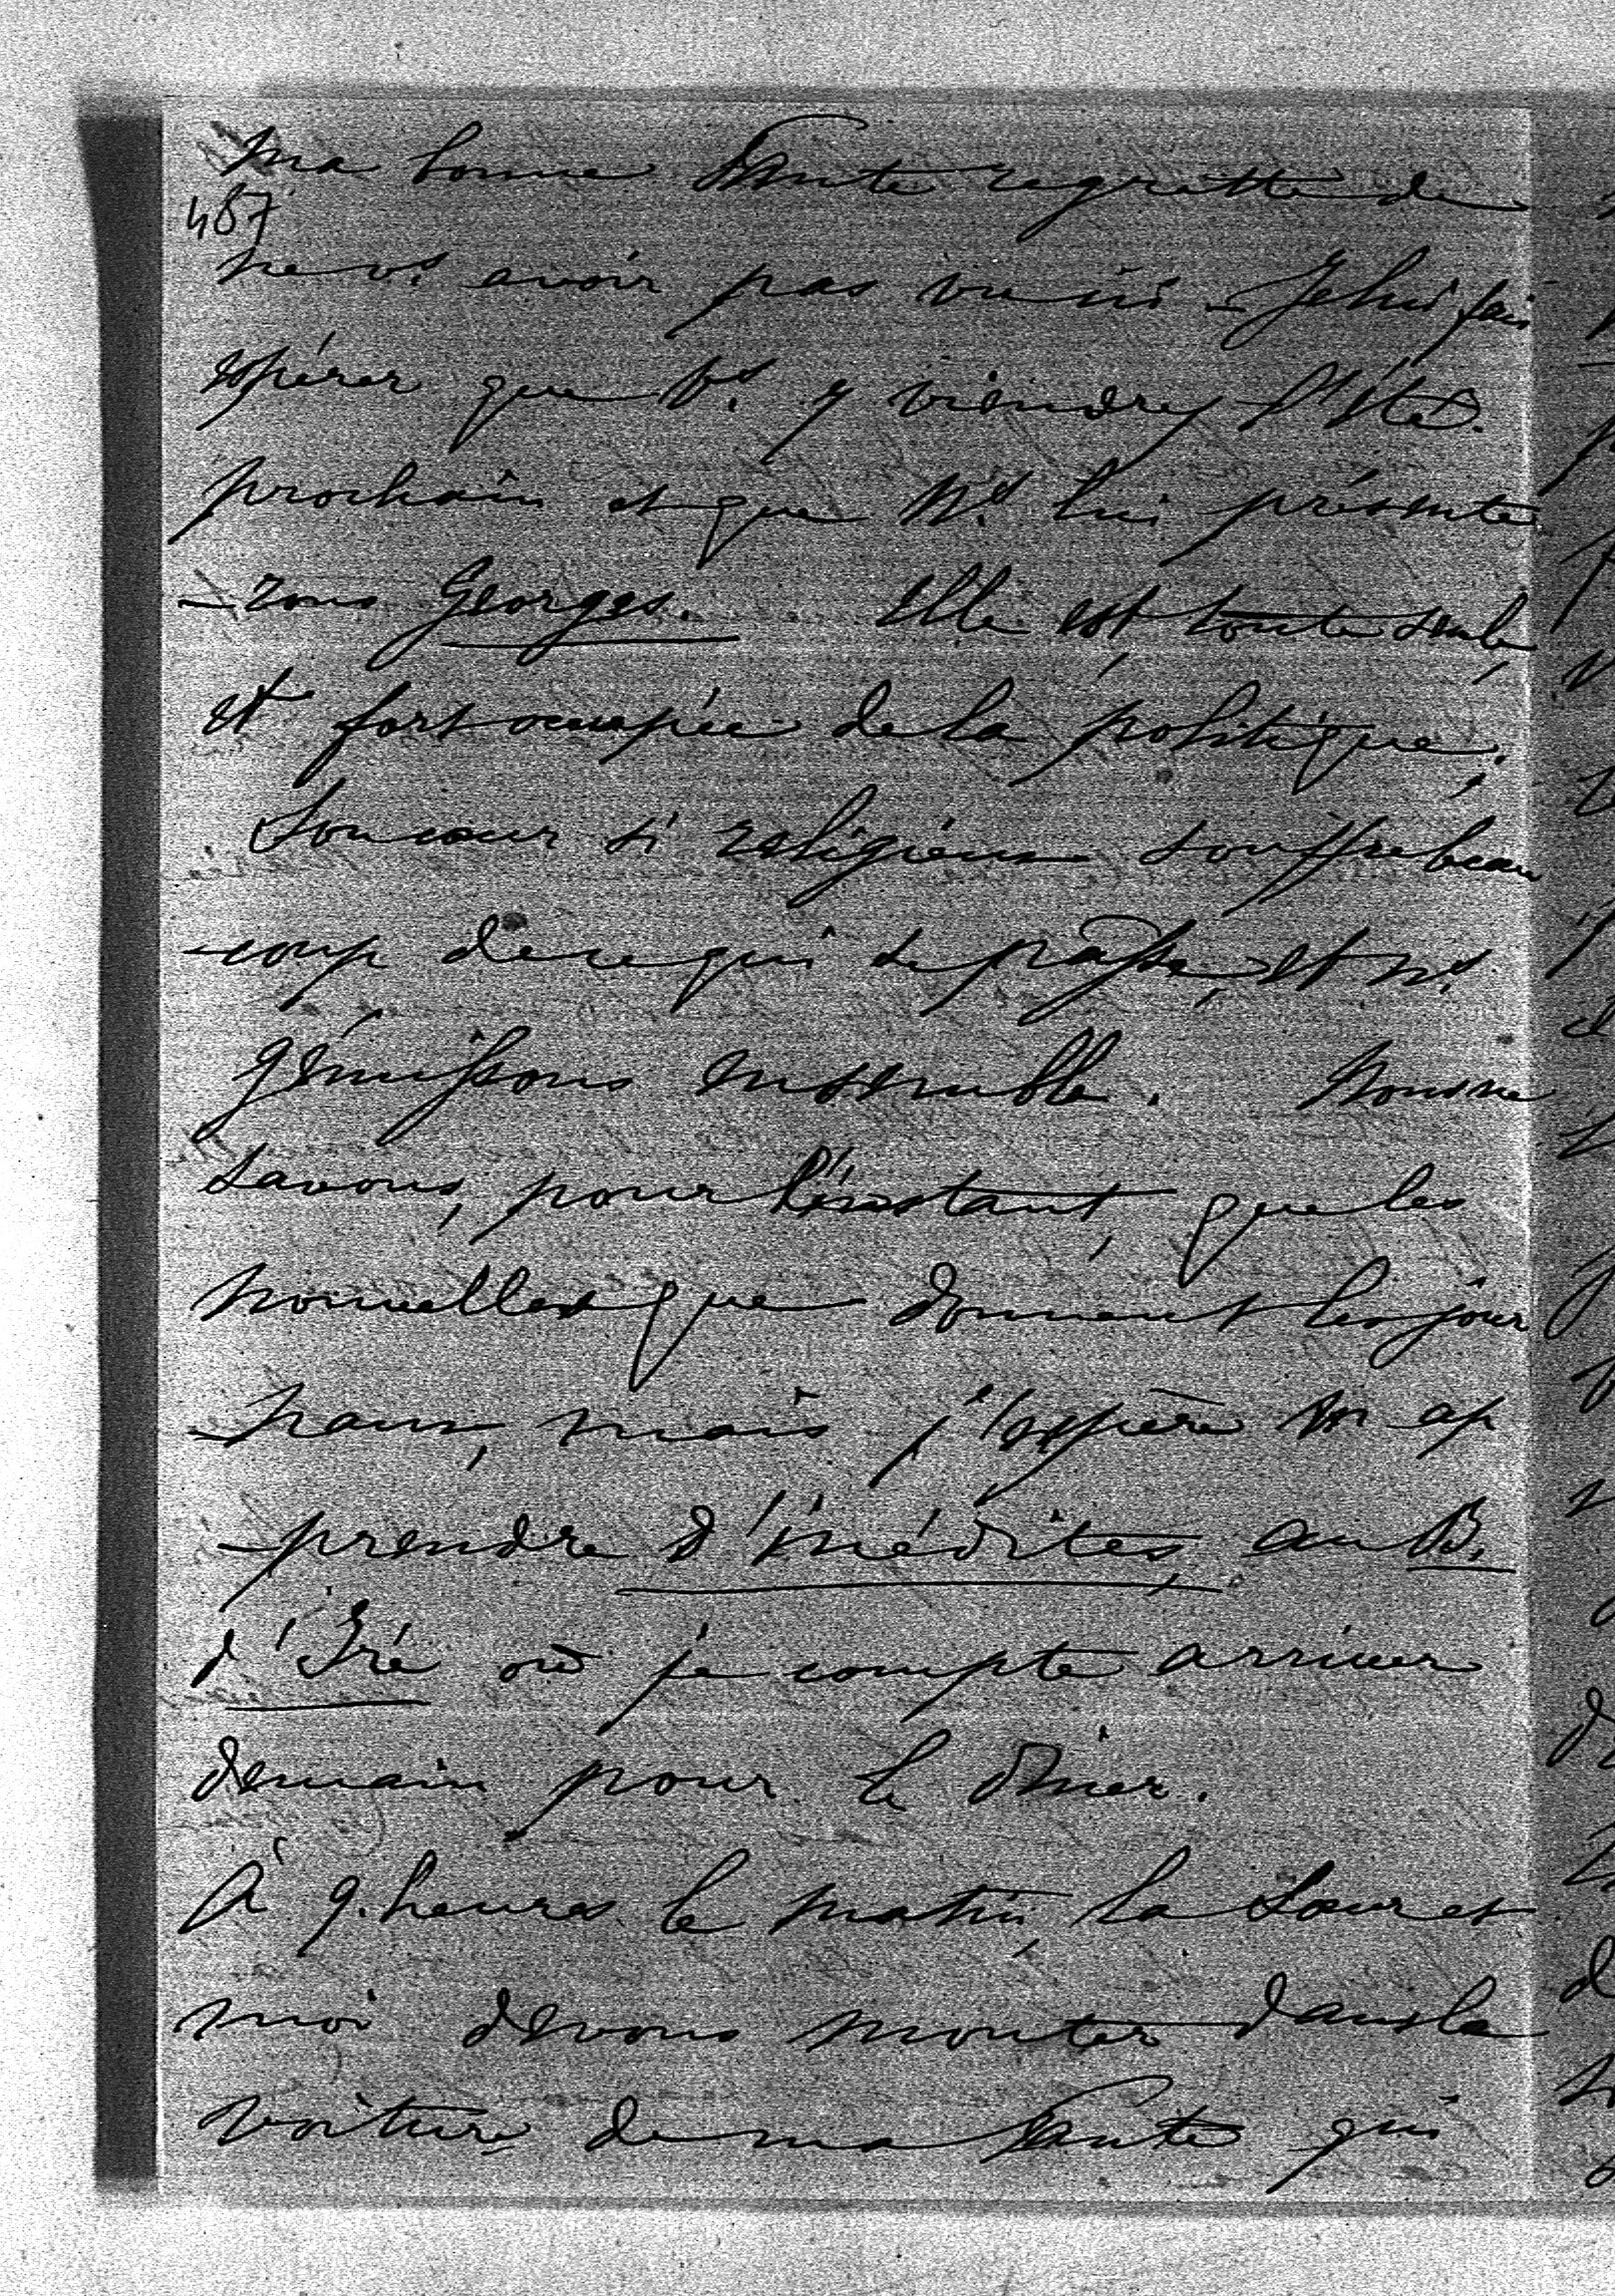 ma bonne Tante regrette de
487
ne vs. avoir pas vu ici – Je lui fais
espérer que Vs. y viendrez l'Eté
prochain et que Ns. lui présente
-rons Georges. Elle est toute seule,
et fort occupée de la politique.
Son cœur si religieux souffre beau
-coup de ce qui se passe, et ns.
gémissons ensemble. Nous ne
savons, pour l'instant, que les
nouvelles que donnent les jour
-naux, mais j'espère en ap
-prendre d'inédites au B.
d'Iré où je compte arriver
demain pour le dîner.
À 9. heures le matin, la Sœur et
moi devons monter dans la
voiture de ma Tante qui